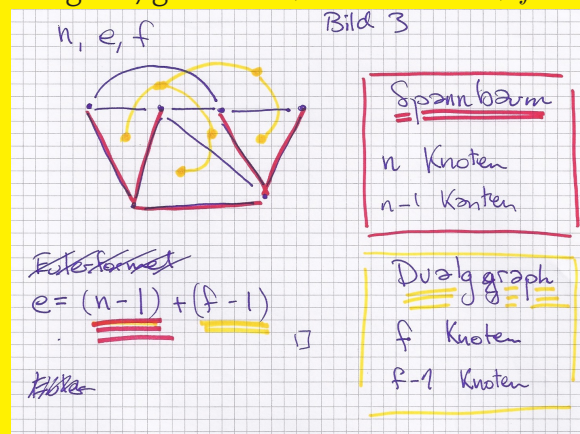 n, e, f
Bild 3
Spannbaum
n Knoten
n-1 Kanten
Eulerformel
e = (n-1) + (f-1)
Dualggraph
f Knoten
f-1 Knoten